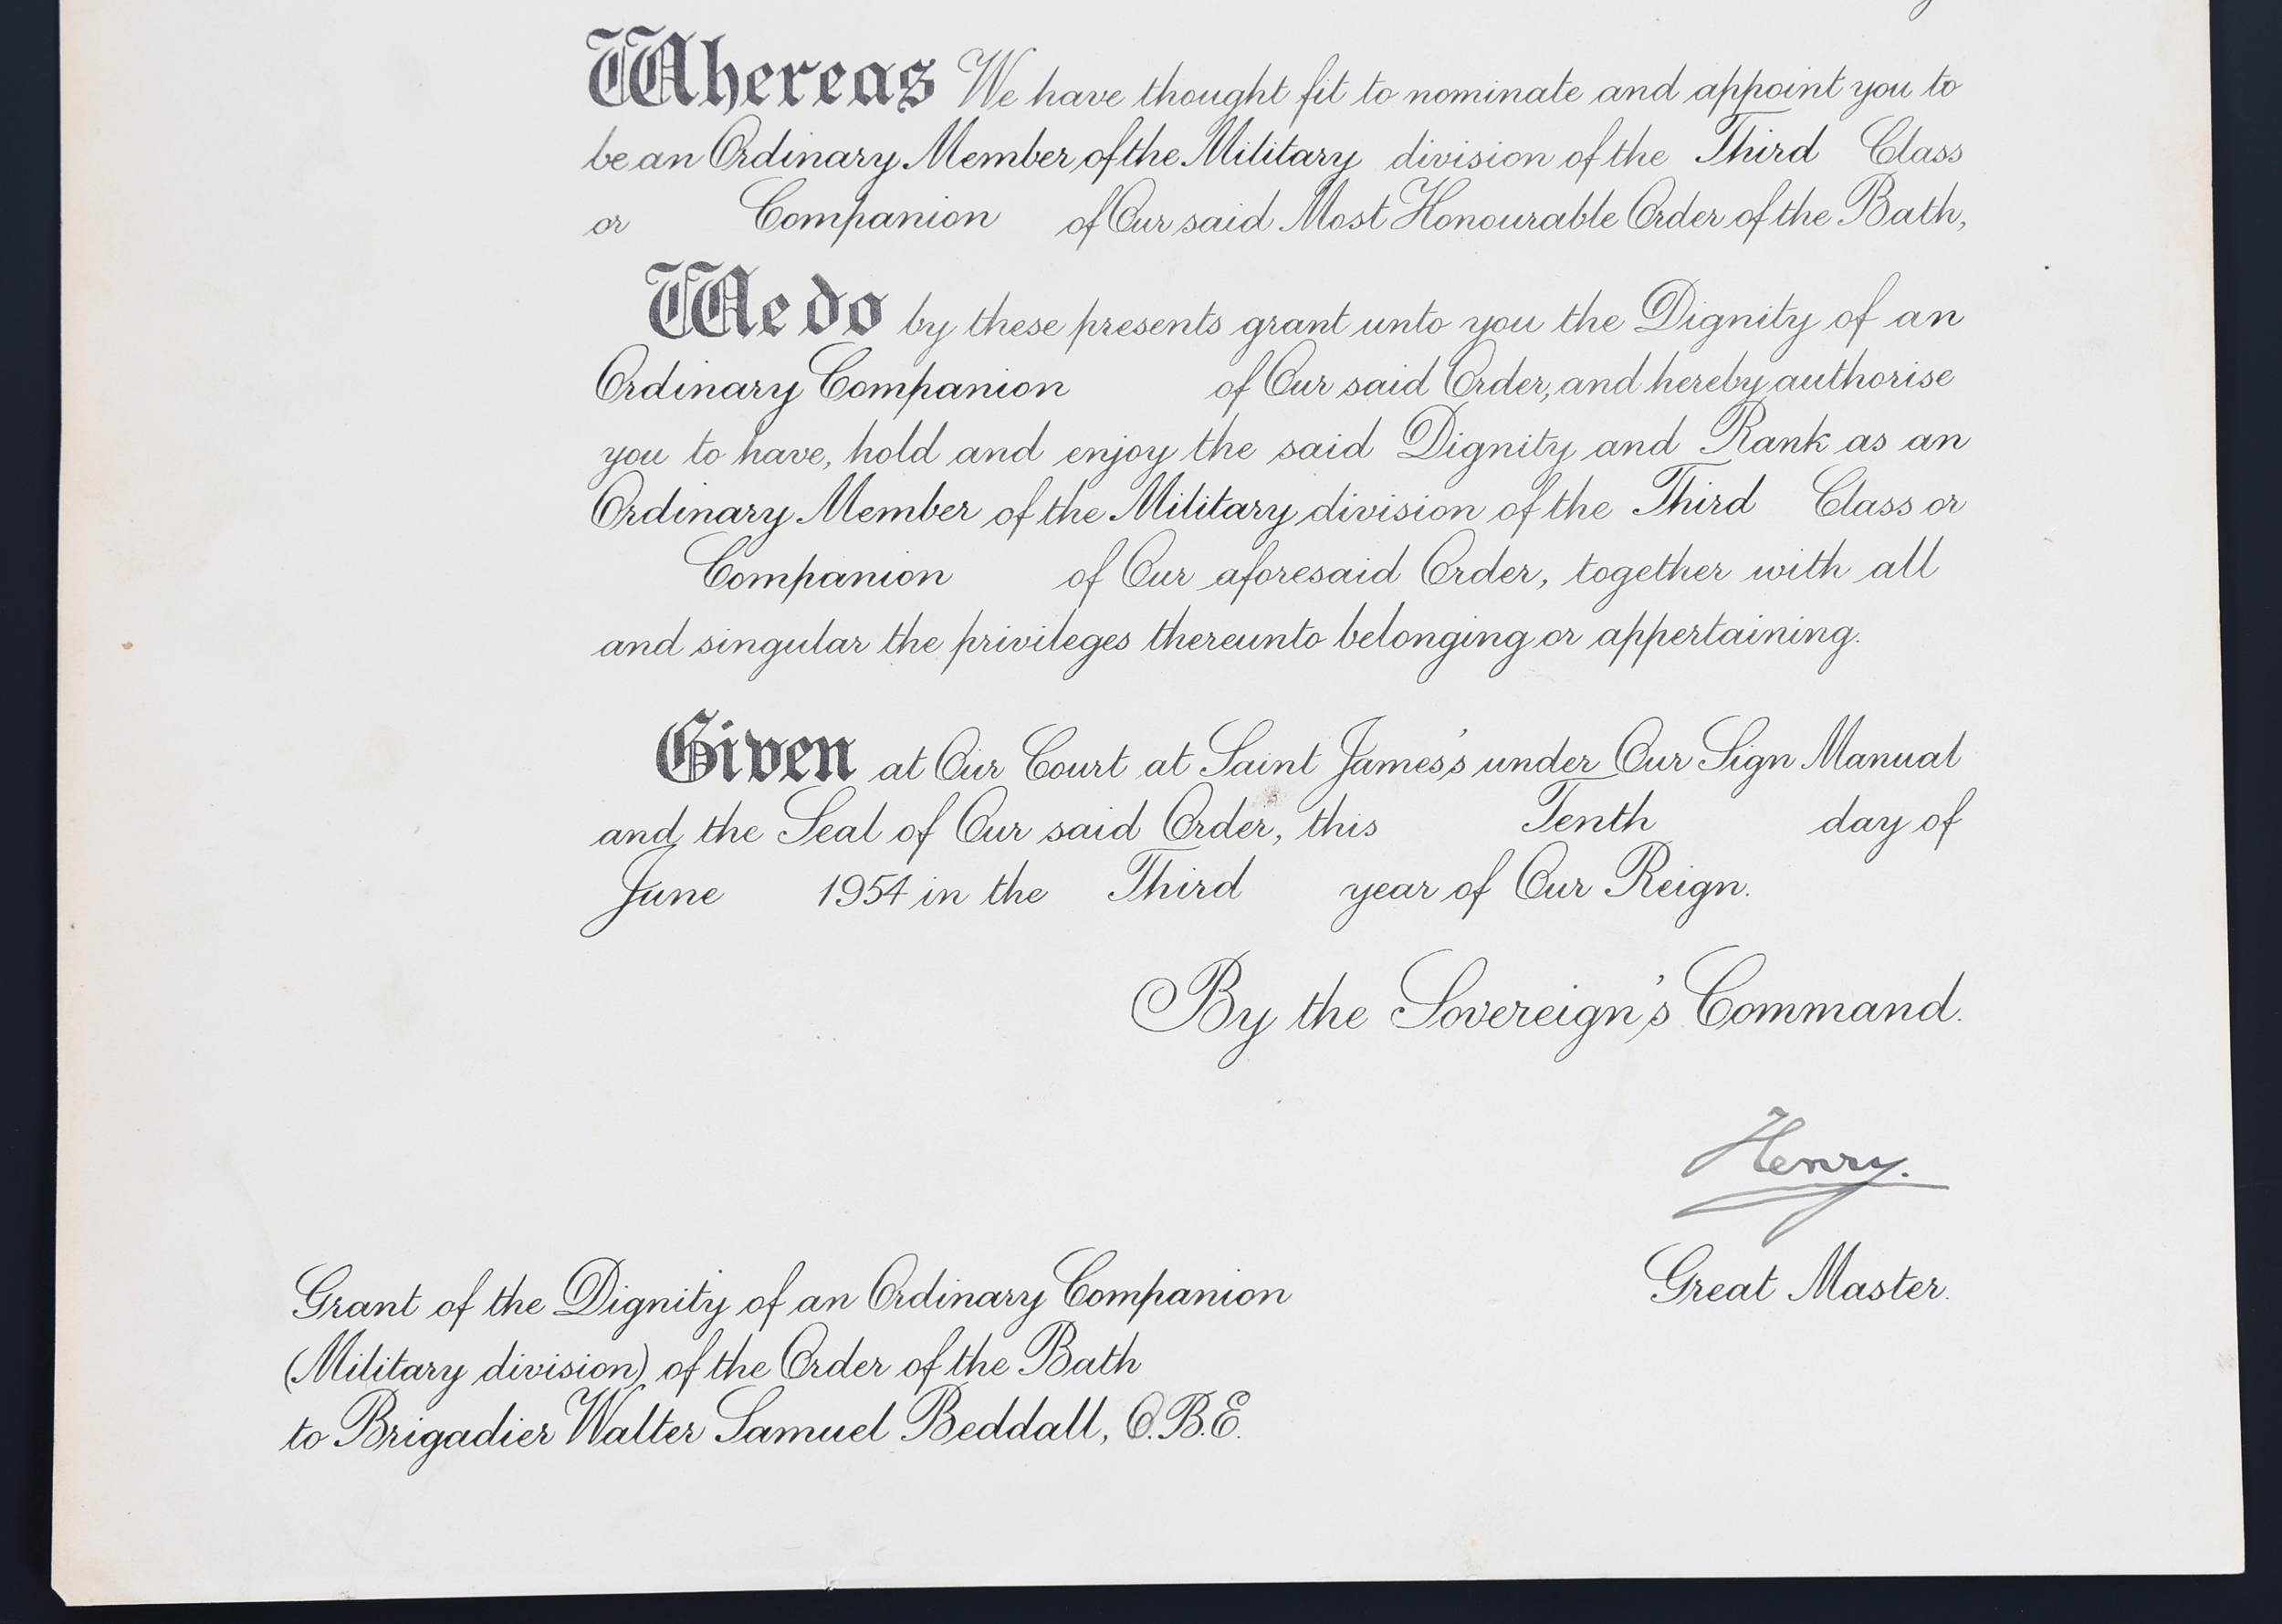 Whereas We have thought fit to nominate and appoint you to
be an Ordinary Member of the Military division of the Third Class
or Companion of Our said Most Honourable Order of the Bath,
We do by these presents grant unto you the Dignity of an
Ordinary Companion of Our said Order, and hereby authorise
you to have, hold and enjoy the said Dignity and Rank as an
Ordinary Member of the Military division of the Third Class or
Companion of Our aforesaid Order, together with all
and singular the privileges thereunto belonging or appertaining.
Given at Our Court at Saint James's under Our Sign Manual
and the Seal of Our said Order, this Tenth day of
June 1954 in the Third year of Our Reign.
By the Sovereign's Command.
Henry.
Great Master.
Grant of the Dignity of an Ordinary Companion
(Military division) of the Order of the Bath
to Brigadier Walter Samuel Beddall, O.B.E.